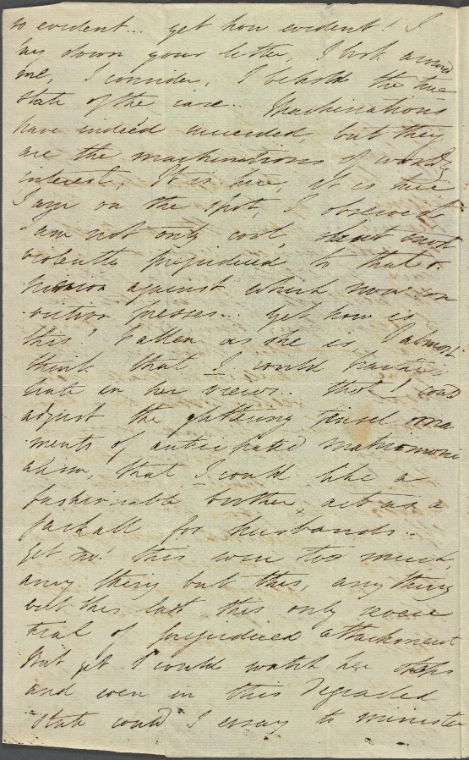 so evident... yet how evident! I
lay down your letter, I look around
me, I consider, I behold the true
state of the case.. Machinations
have indeed succeeded, but they
are the machinations of worldly
interest; It is here, it is here
I am on the spot, I observe &
am not only cool, but most
violently prejudiced to that
against which now con
viction presses.. Yet how is
this! Fallen as she is I almost
think that I could
-ate in her views.. that I could
adjust the glittering tinsel orna
ments of anticipated matrimoni
alism, that I could like a
fashionable brother, act as a
jackall for husbands..
yet no! this were too much,
any thing but this, any thing
but this last this only
trial of prejudiced attachment
But yet I could watch her steps
and even in this degraded
state could I essay to minister